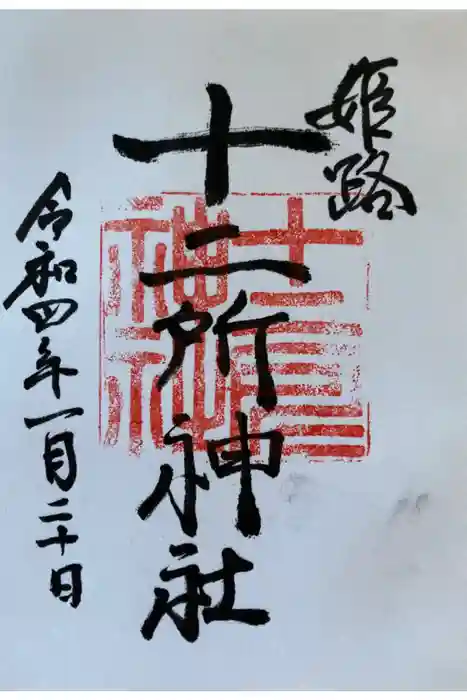 姫路
十二所神社
令和四年一月二十日